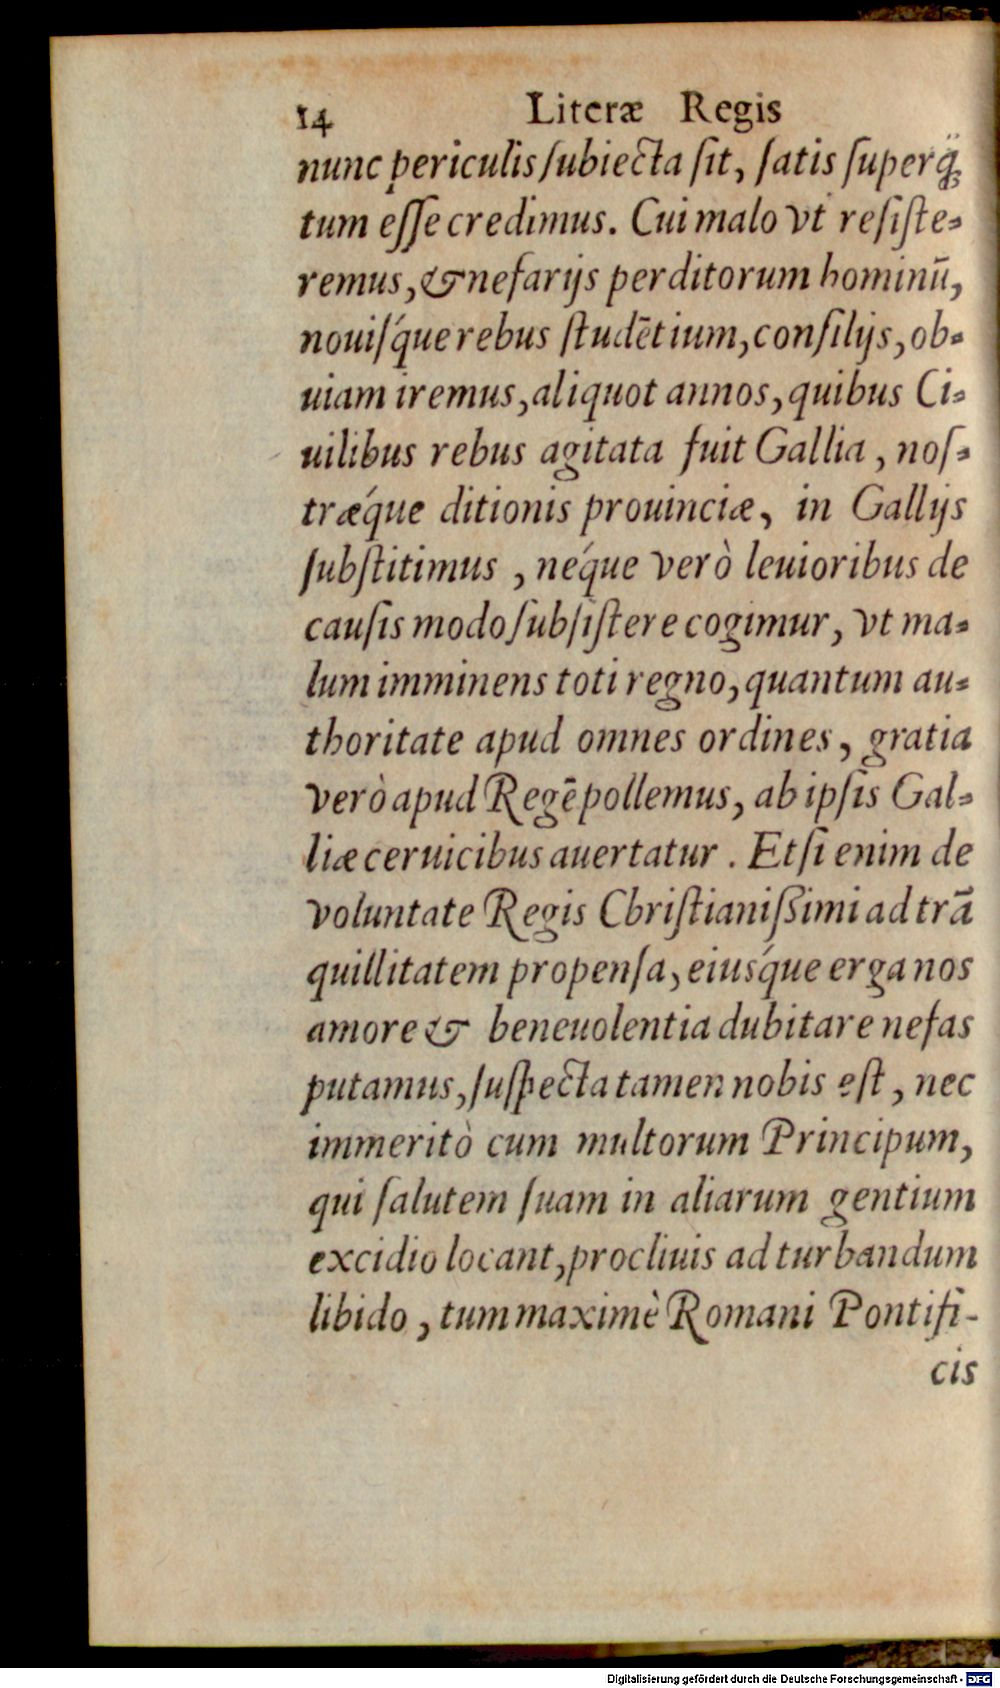 14 Literæ Regis
nunc periculis ſubiecta ſit, ſatis ſuperq́;
tum eſſe credimus. Cui malo vt reſiſte-
remus, & nefarijs perditorum hominū,
nouiſq́ue rebus ſtudētium, conſilijs, ob-
uiam iremus, aliquot annos, quibus Ci-
uilibus rebus agitata fuit Gallia, noſ-
træq́ue ditionis prouinciæ, in Gallijs
ſubſtitimus, neq́ue verò leuioribus de
cauſis modo ſubſiſtere cogimur, vt ma-
lum imminens toti regno, quantum au-
thoritate apud omnes ordines, gratia
verò apud Regē pollemus, ab ipſis Gal-
liæ ceruicibus auertatur. Etſi enim de
voluntate Regis Chriſtianiſſimi ad trā
quillitatem propenſa, eiusq́ue erga nos
amore & beneuolentia dubitare nefas
putamus, ſuſpecta tamen nobis eſt, nec
immeritò cum multorum Principum,
qui ſalutem ſuam in aliarum gentium
excidio locant, procliuis ad turbandum
libido, tum maximè Romani Pontifi-
cis
Digitalisierung gefördert durch die Deutsche Forschungsgemeinschaft - DFG